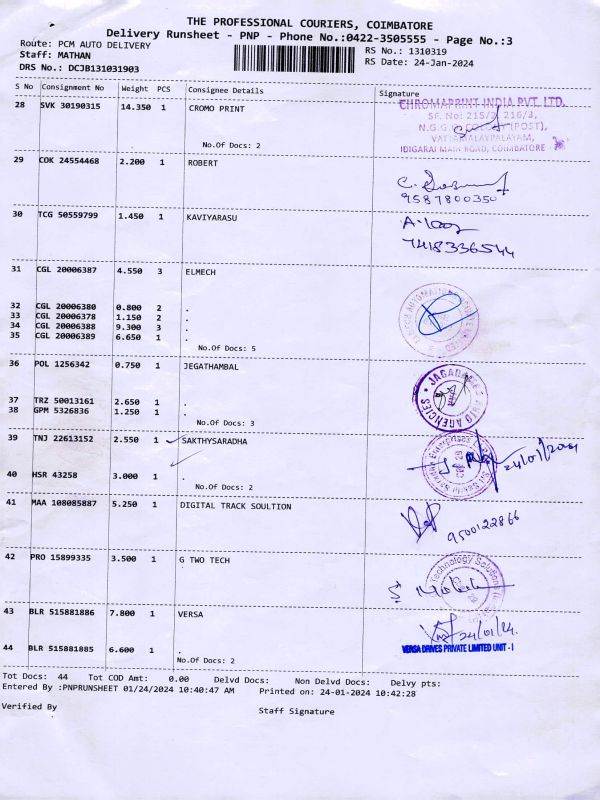 THE PROFESSIONAL COURIERS, COIMBATORE
Delivery Runsheet - PNP - Phone No.:0422-3505555 - Page No.:3
Route: PCM AUTO DELIVERY
RS No.: 1310319
Staff: MATHAN
RS Date: 24-Jan-2024
DRS No.: DCJB131031903
S No Consignment No Weight PCS Consignee Details Signature
28 SVK 30190315 14.350 1 CROMO PRINT
CHROMAPRINT INDIA PVT. LTD.
SF. No: 215/2, 216/3,
N.G.G. (POST),
IDIGARAI MAIN ROAD, COIMBATORE
No.Of Docs: 2
29 COK 24554468 2.200 1 ROBERT
9587800350
30 TCG 50559799 1.450 1 KAVIYARASU
7418336544
31 CGL 20006387 4.550 3 ELMECH
32 CGL 20006380 0.800 2 .
33 CGL 20006378 1.150 2 .
34 CGL 20006388 9.300 3 .
35 CGL 20006389 6.650 1 .
No.Of Docs: 5
36 POL 1256342 0.750 1 JEGATHAMBAL
37 TRZ 50013161 2.650 1 .
38 GPM 5326836 1.250 1 .
No.Of Docs: 3
39 TNJ 22613152 2.550 1 SAKTHYSARADHA
24/01/2024
40 HSR 43258 3.000 1 .
No.Of Docs: 2
41 MAA 108085887 5.250 1 DIGITAL TRACK SOULTION
9500122866
42 PRO 15899335 3.500 1 G TWO TECH
Technology Solutions
43 BLR 515881886 7.800 1 VERSA
24/01/24.
VERSA DRIVES PRIVATE LIMITED UNIT - I
44 BLR 515881885 6.600 1 .
No.Of Docs: 2
Tot Docs: 44 Tot COD Amt: 0.00 Delvd Docs: Non Delvd Docs: Delvy pts:
Entered By :PNPRUNSHEET 01/24/2024 10:40:47 AM Printed on: 24-01-2024 10:42:28
Verified By
Staff Signature